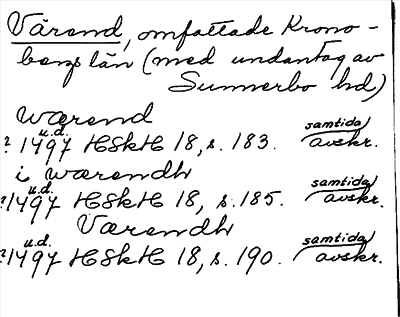 Värend, omfattade Krono-
bergs län (med undantag av
Sunnerbo hd)
wærend
? 1497 u.d. HSkH 18, s. 183. samtida avskr.
i wærendh
?1497 u.d. HSkH 18, s. 185. samtida avskr.
Værendh
?1497 u.d. HSkH 18, s. 190. samtida avskr.